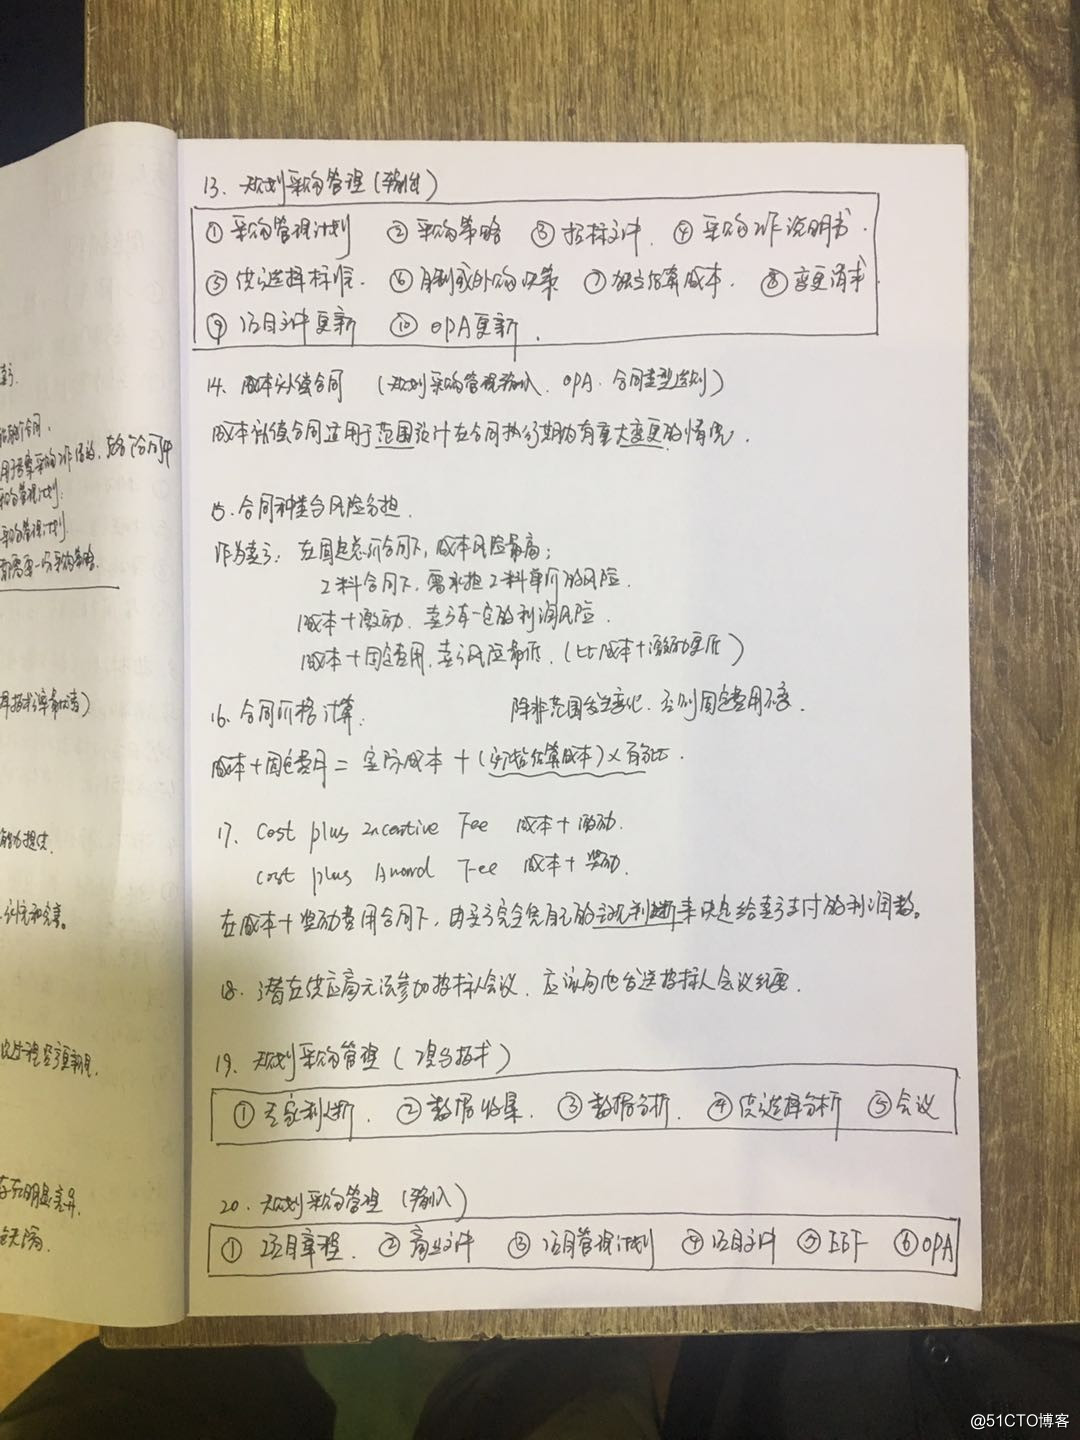 卖方.
用于

采购管理计划.
采购管理计划.
一份采购策略.
能力提供.
补充和完善。
存在明显差异.
13. 规划采购管理(输出)
① 采购管理计划 ② 采购策略 ③ 招标文件. ④ 采购工作说明书.
⑤ 供方选择标准. ⑥ 自制或外购决策 ⑦ 独立估算成本. ⑧ 变更请求
⑨ 项目文件更新 ⑩ OPA更新.
14. 成本补偿合同 (规划采购管理输入. OPA. 合同类型法则)
成本补偿合同适用于范围预计在合同执行期内有重大变更的情况.
15. 合同种类与风险分担.
作为卖方: 在固定总价合同下, 成本风险最高;
工料合同下, 需承担工料单价的风险.
成本+激励. 卖方有一定的利润风险.
成本+固定费用, 卖方风险最低. (比成本+激励更低)
16. 合同价格计算. 除非范围发生变化. 否则固定费用不变.
成本+固定费用 = 实际成本 + (初始估算成本)×百分比.
17. Cost plus Incentive Fee 成本+激励.
cost plus Award Fee 成本+奖励.
在成本+奖励费用合同下, 由买方完全凭自己的主观判断来决定给卖方支付的利润数。
18. 潜在供应商无法参加投标人会议. 应该向他发送投标人会议纪要.
19. 规划采购管理 (工具与技术)
① 专家判断. ② 数据收集. ③ 数据分析. ④ 供方选择分析 ⑤ 会议
20. 规划采购管理 (输入)
① 项目章程. ② 商业文件 ③ 项目管理计划 ④ 项目文件 ⑤ EEF ⑥ OPA
@51CTO博客